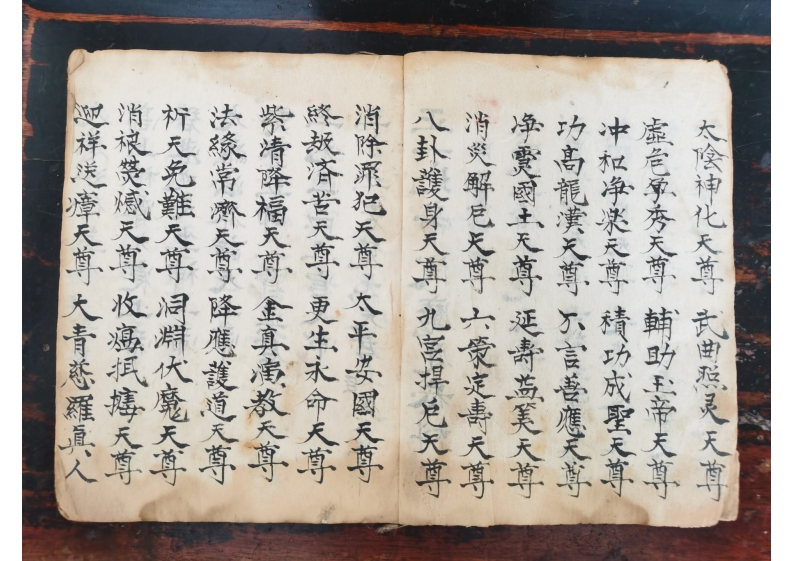 太陰神化天尊 武曲照灵天尊
虛危孕秀天尊 輔助玉帝天尊
冲和净楽天尊 積功成聖天尊
功髙龍漢天尊 不言善應天尊
净霓國土天尊 延壽益筭天尊
消災解厄天尊 六筞定壽天尊
八卦護身天尊 九宮捍厄天尊
消除罪犯天尊 太平安國天尊
終极済苦天尊 更生永命天尊
紫清降福天尊 金真演教天尊
法緣常濟天尊 降應護道天尊
祈天免難天尊 洞淵伏魔天尊
消祲天尊 收瘟天尊
迎祥送瘴天尊 大青慈羅真人